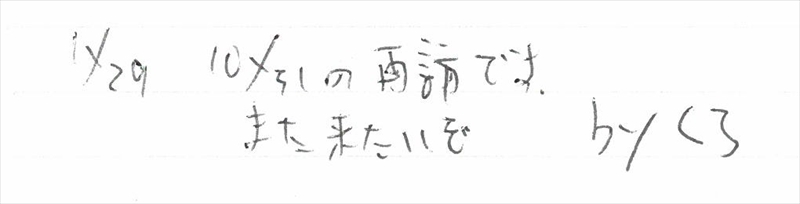 1/29 10/31の再訪です.
また来たいぞ byくろ